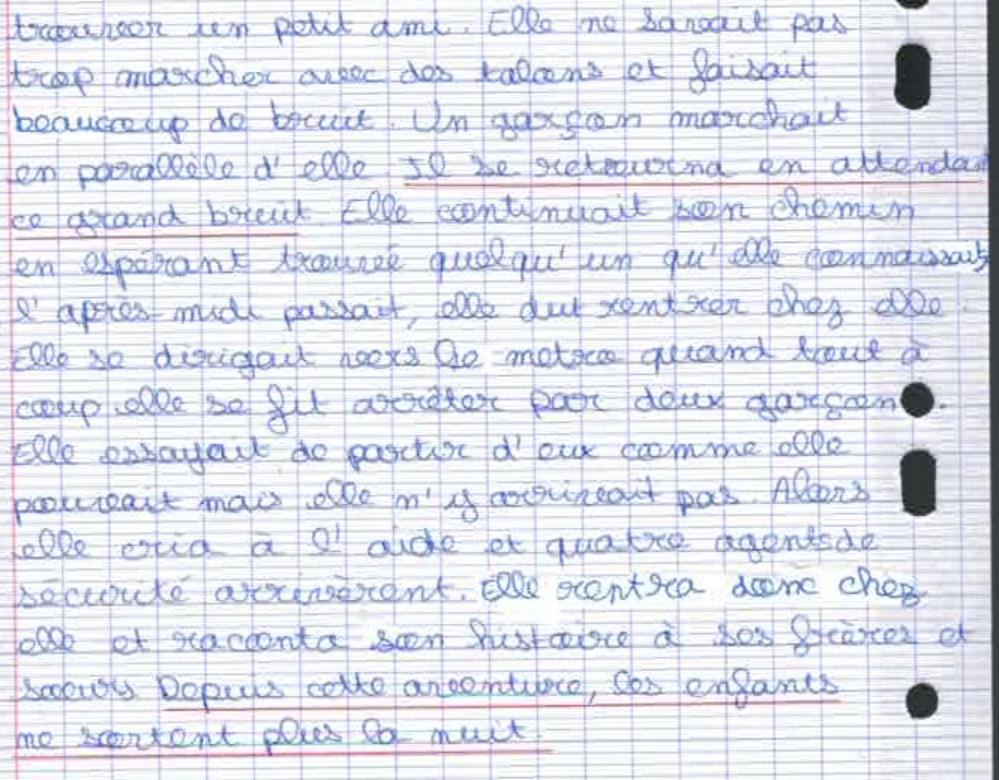 trouver un petit ami. Elle ne savait pas
trop marcher avec des talons et faisait
beaucoup de bruit. Un garçon marchait
en parallèle d'elle Il se retourna en attendant
ce grand bruit. Elle continuait son chemin
en espérant trouvé quelqu'un qu'elle connaissait
l'après-midi passait, elle dut rentrer chez elle.
Elle se dirigait vers le metro quand tout à
coup elle se fit arrêter par deux garçon.
Elle essayait de partir d'eux comme elle
pouvait mais elle n'y arrivait pas. Alors
elle cria à l'aide et quatre agents de
sécurité arrivèrent. Elle rentra donc chez
elle et raconta son histoire à ses frères et
soeurs Depuis cette aventure, les enfants
ne sortent plus la nuit.